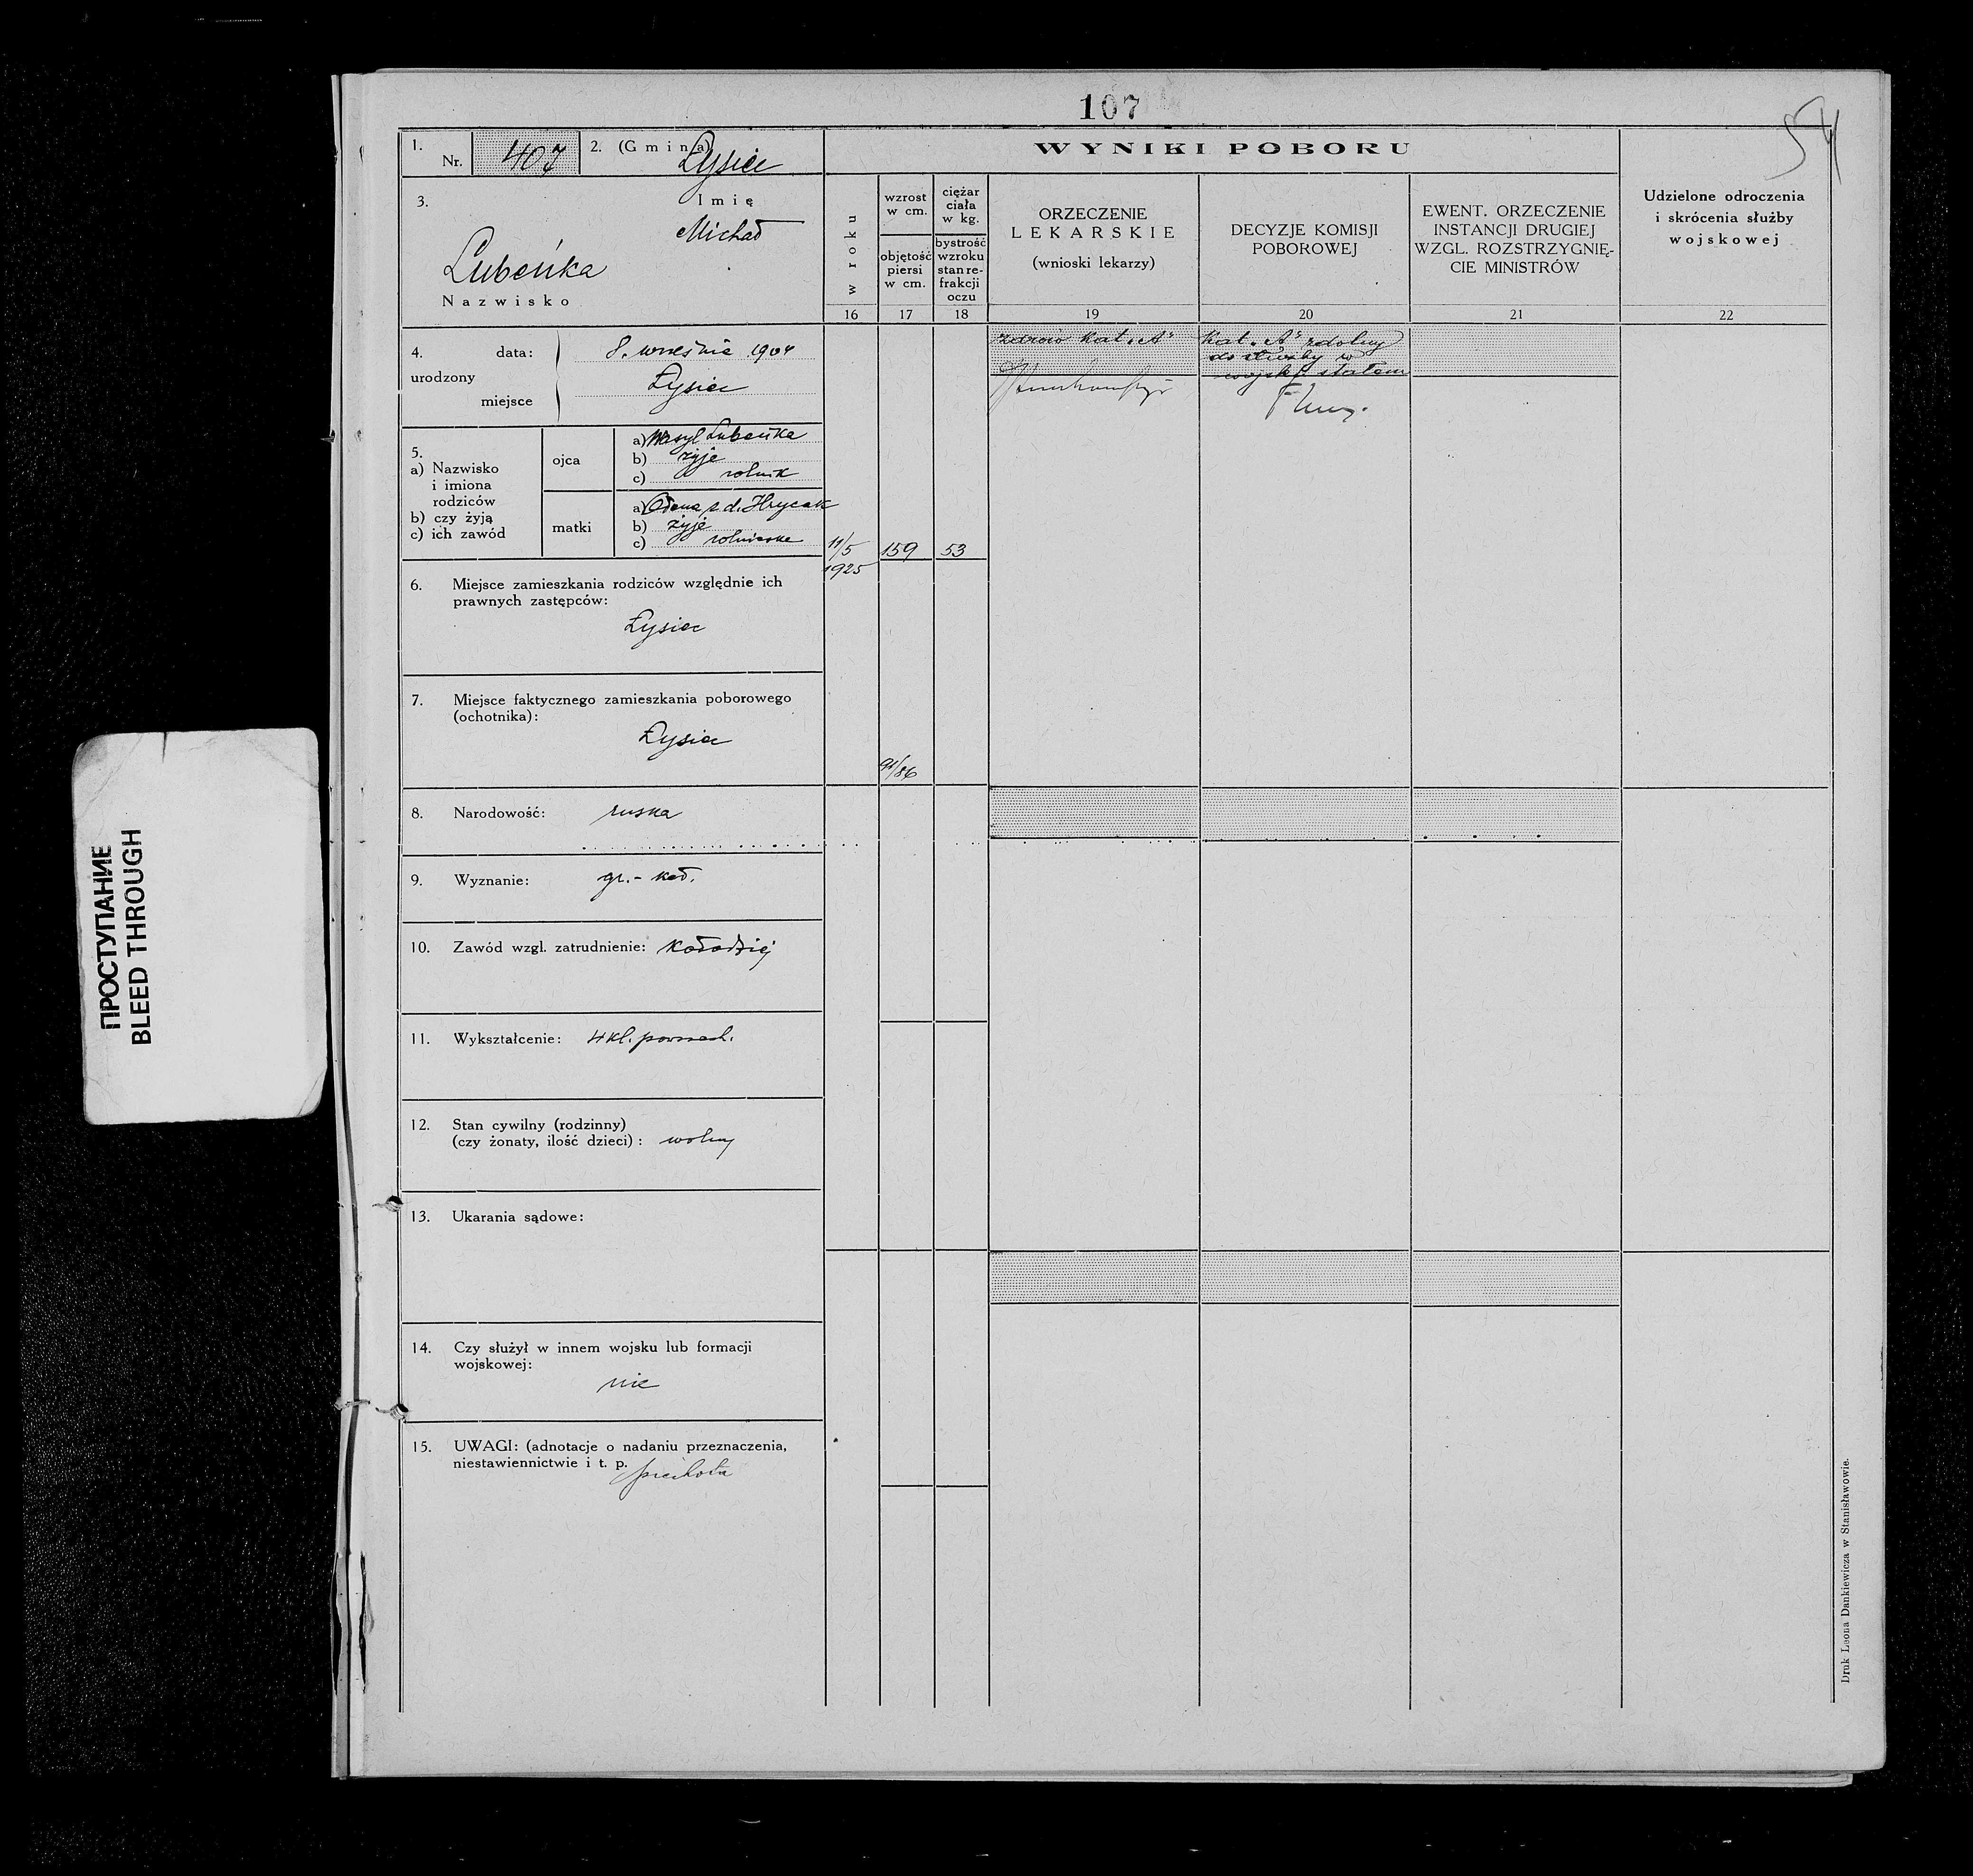 107
54
1. Nr. 407 2. (Gmina) Łysiec
3. Imię
Michał
Lubeńka
Nazwisko
4. urodzony data: 8. września 1904
miejsce Łysiec
5.
a) Nazwisko i imiona rodziców
b) czy żyją
c) ich zawód
ojca
a) Wasyl Lubeńka
b) żyje
c) rolnik
matki
a) Ołena z d. Hrycak
b) żyje
c)
6. Miejsce zamieszkania rodziców względnie ich
prawnych zastępców:
Łysiec
7. Miejsce faktycznego zamieszkania poborowego
(ochotnika):
Łysiec
8. Narodowość: ruska
9. Wyznanie: gr.-kat.
10. Zawód wzgl. zatrudnienie: kołodziej
11. Wykształcenie: 4 kl. powszech.
12. Stan cywilny (rodzinny)
(czy żonaty, ilość dzieci): wolny
13. Ukarania sądowe:
14. Czy służył w innem wojsku lub formacji
wojskowej:
nie
15. UWAGI: (adnotacje o nadaniu przeznaczenia,
niestawiennictwie i t. p.
piechota
WYNIKI POBORU
w roku
wzrost
w cm.
objętość
piersi
w cm.
ciężar
ciała
w kg.
bystrość
wzroku
stan re-
frakcji
oczu
ORZECZENIE
LEKARSKIE
(wnioski lekarzy)
DECYZJE KOMISJI
POBOROWEJ
EWENT. ORZECZENIE
INSTANCJI DRUGIEJ
WZGL. ROZSTRZYGNIĘ-
CIE MINISTRÓW
Udzielone odroczenia
i skrócenia służby
wojskowej
16 17 18 19 20 21 22
zdrów kat. „A"
Kat. „A" zdolny
do służby w
wojsk. stałem
11/5
1925
159
53
91/86
Druk Leona Dankiewicza w Stanisławowie.
ПРОСТУПАНИЕ
BLEED THROUGH